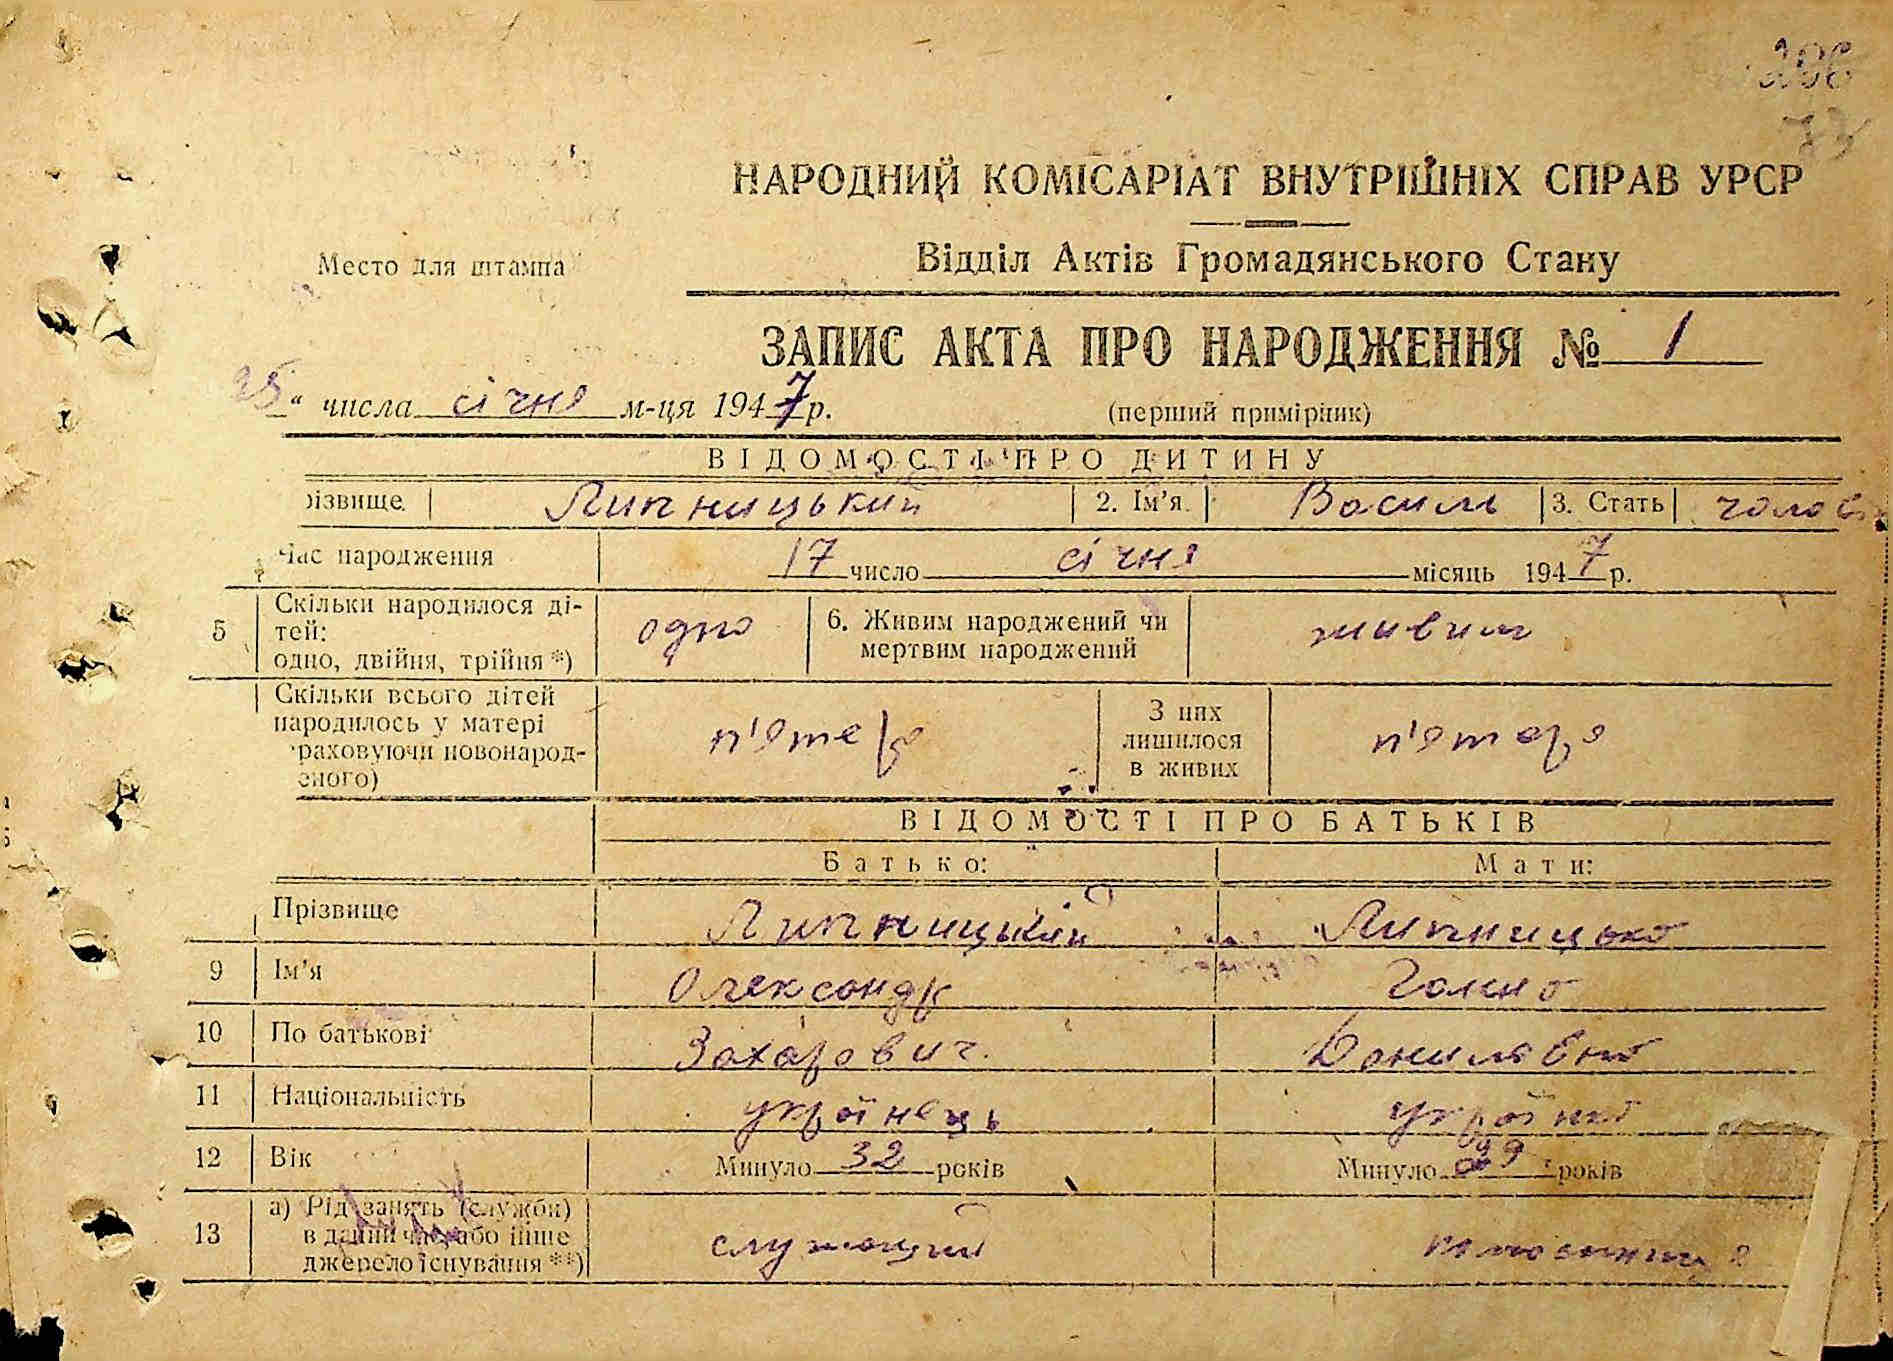 206
73
НАРОДНИЙ КОМІСАРІАТ ВНУТРІШНІХ СПРАВ УРСР
Место для штампа
Відділ Актів Громадянського Стану
ЗАПИС АКТА ПРО НАРОДЖЕННЯ № 1
25 " числа січня м-ця 1947 р.
(перший примірник)
ВІДОМОСТІ ПРО ДИТИНУ
різвище Липницький 2. Ім'я Василь 3. Стать чолов
Час народження 17 число січня місяць 1947 р.
5 Скільки народилося ді-
тей:
одно, двійня, трійня *) одно 6. Живим народжений чи
мертвим народжений живим
Скільки всього дітей
народилось у матері
раховуючи новонарод-
еного) п'ятеро З них
лишилося
в живих п'ятеро
ВІДОМОСТІ ПРО БАТЬКІВ
Батько: Мати:
Прізвище Липницький Липницька
9 Ім'я Олександр Галина
10 По батькові Захарович Данилавна
11 Національність українець українка
12 Вік Минуло 32 років Минуло 29 років
13 а) Рід занять (служби)
в даний час або інше
джерело існування **) служащий